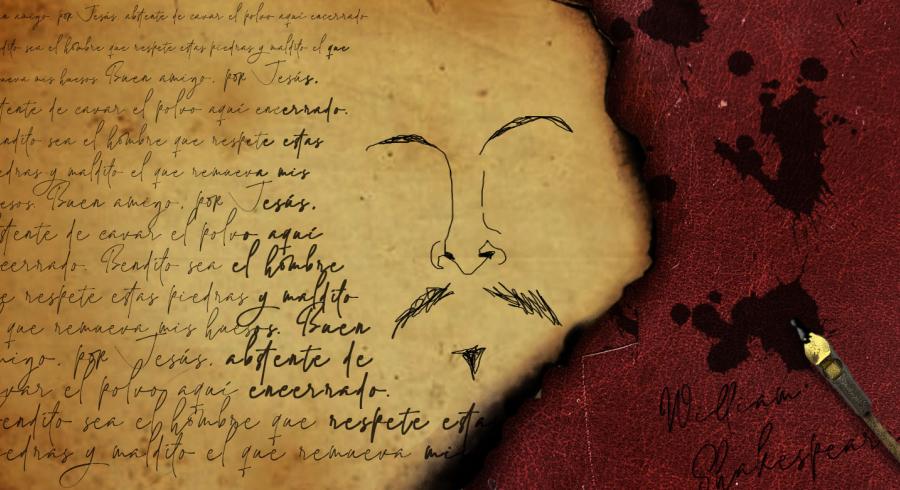 amigo, por Jesús, abstente de cavar el polvo aquí encerrado
dito sea el hombre que respete estas piedras y maldito el que
ueva mis huesos. Buen amigo, por Jesús,
tente de cavar el polvo aquí encerrado.
endito sea el hombre que respete estas
edras y maldito el que remueva mis
esos. Buen amigo, por Jesús,
stente de cavar el polvo aquí
cerrado. Bendito sea el hombre
e respete estas piedras y maldito
que remueva mis huesos. Buen
migo, por Jesús, abstente de
var el polvo aquí encerrado.
endito sea el hombre que respete esta
edras y maldito el que remueva mi
William
Shakespear